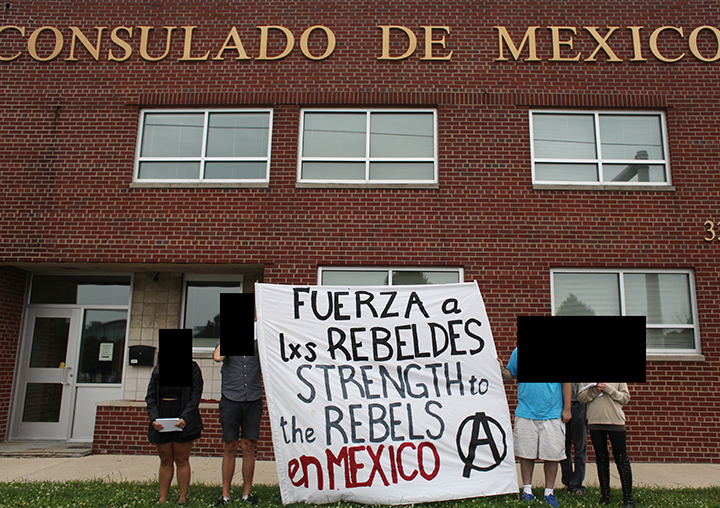 CONSULADO DE MEXICO
FUERZA a
lxs REBELDES
STRENGTH to
the REBELS
en MEXICO
A